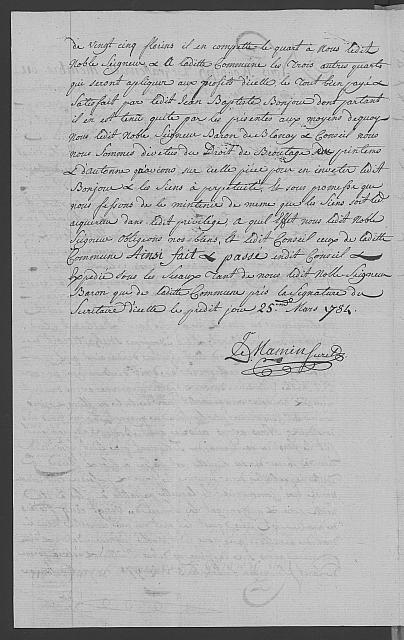 de vingt cinq florins il en compette le quart a Nous ledit
Noble Seigneur & a laditte Commune les Trois autres quarts
qui seront apliquer aux profits d'icelle le Tout bien payé &
Satisfait par ledit Jean Baptiste Bonjou dont partant
il en est tenu quite par les presentes aux moyens dequoy
Nous ledit Noble Seigneur Baron de Blonay & Conseil nous
nous Sommes divetus du Droit de Broutage du printems
& d'automne qu'avions sur icelle pièce pour en investir ledit
Bonjou & les Siens a perpetuité & sous promesse que
nous fessons de le maintenir de meme que les Siens soit led
aiquereur dans ledit privilege, a quel effet nous ledit Noble
Seigneur obligeons nos biens, & ledit Conseil ceux de laditte
Commune Ainsi fait & passé endit Conseil &
Expedié Sous les Sceaux Tant de nous ledit Noble Seigneur
Baron que de laditte Commune pris la Signature du
Secretaire d'icelle le predit jour 25me Mars 1784.
Mamin Secret